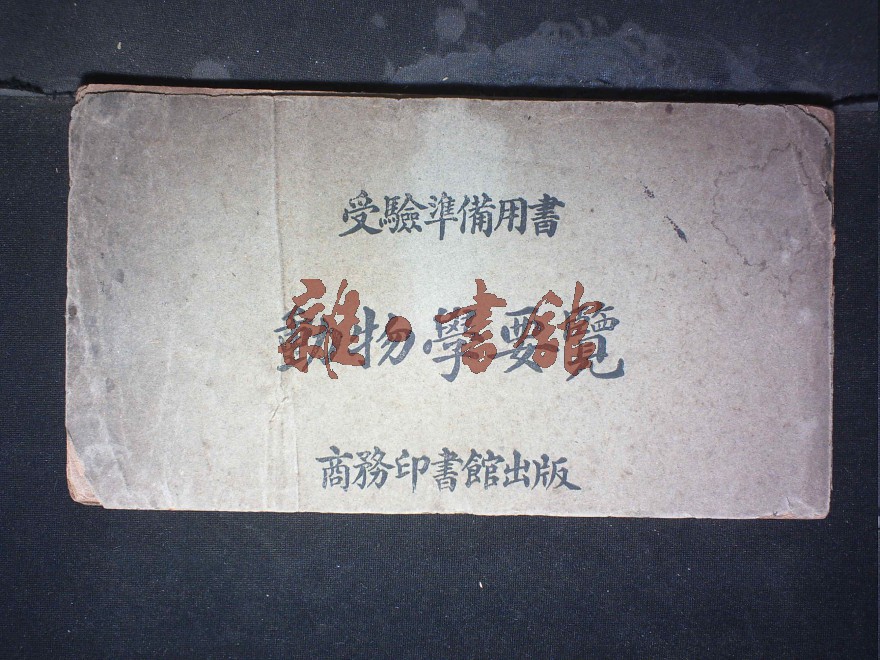 受驗準備用書
動物學要覽
商務印書館出版